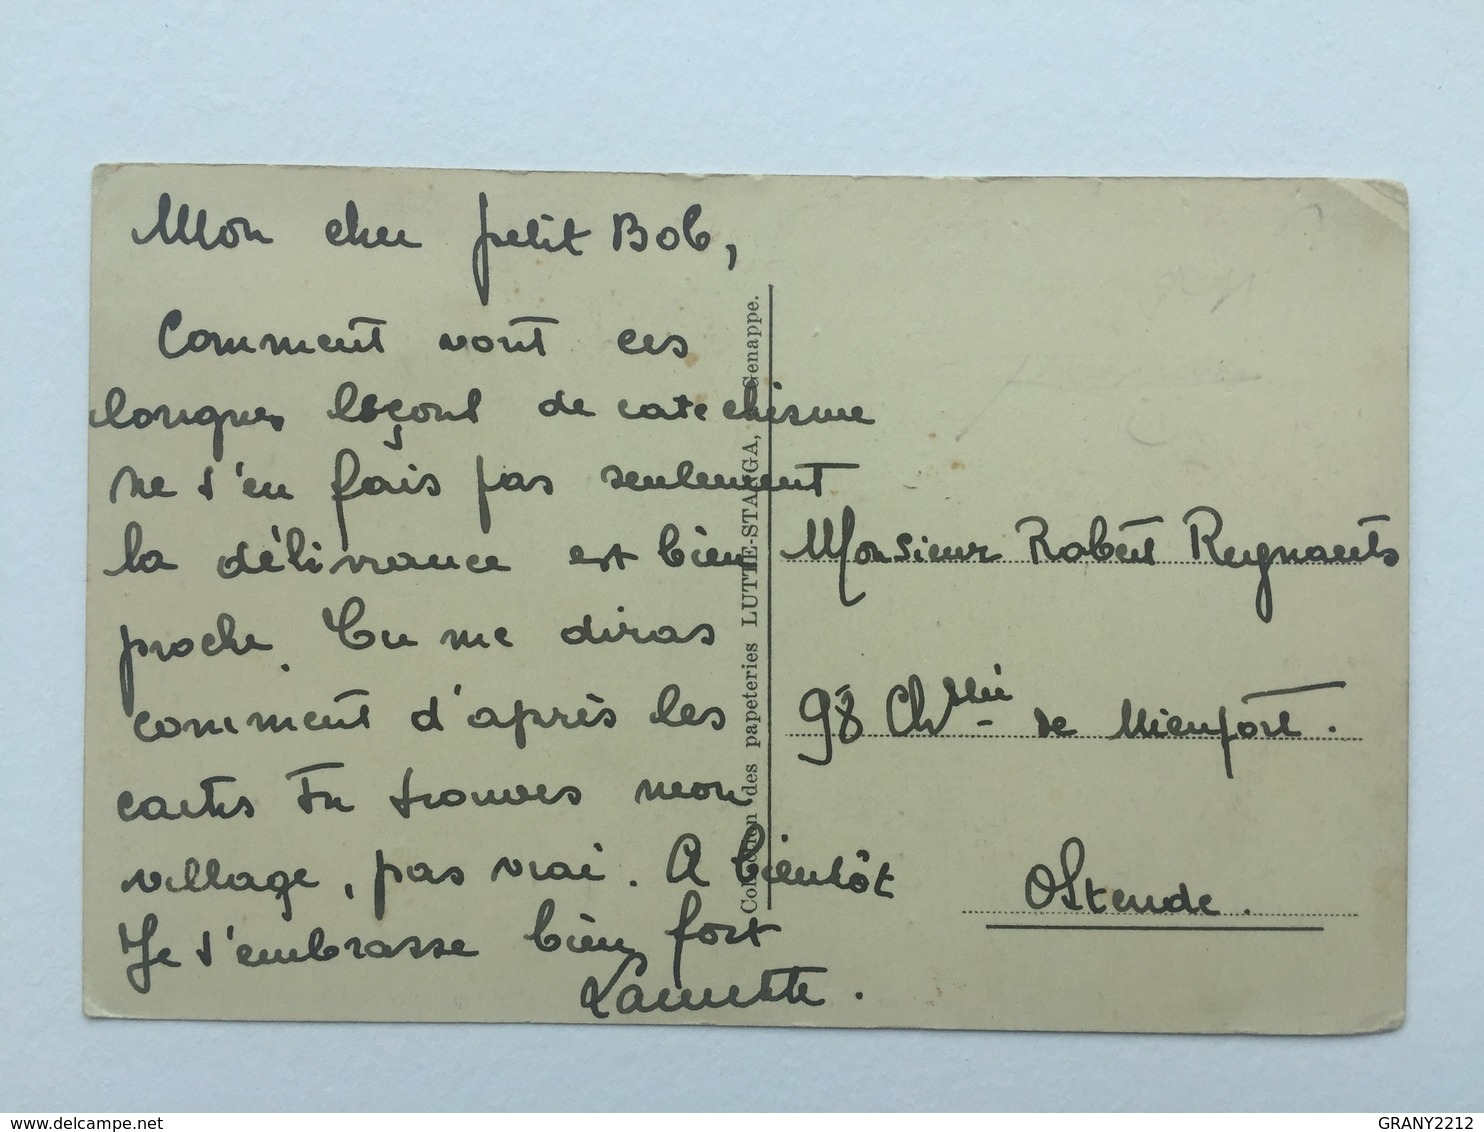 Mon cher petit Bob,
Comment vont ces
longues leçons de catechisme
ne t'en fais pas seulement
la délivrance est bien
proche. Tu me diras
comment d'après les
cartes Tu trouves mon
village, pas vrai. A bientôt
Je t'embrasse bien fort
Collection des papeteries LUTTE-STANGA, Genappe.
Monsieur Robert Reynaerts
98 Ch ssée de Nieuport.
Ostende.
delcampe.net
GRANY2212